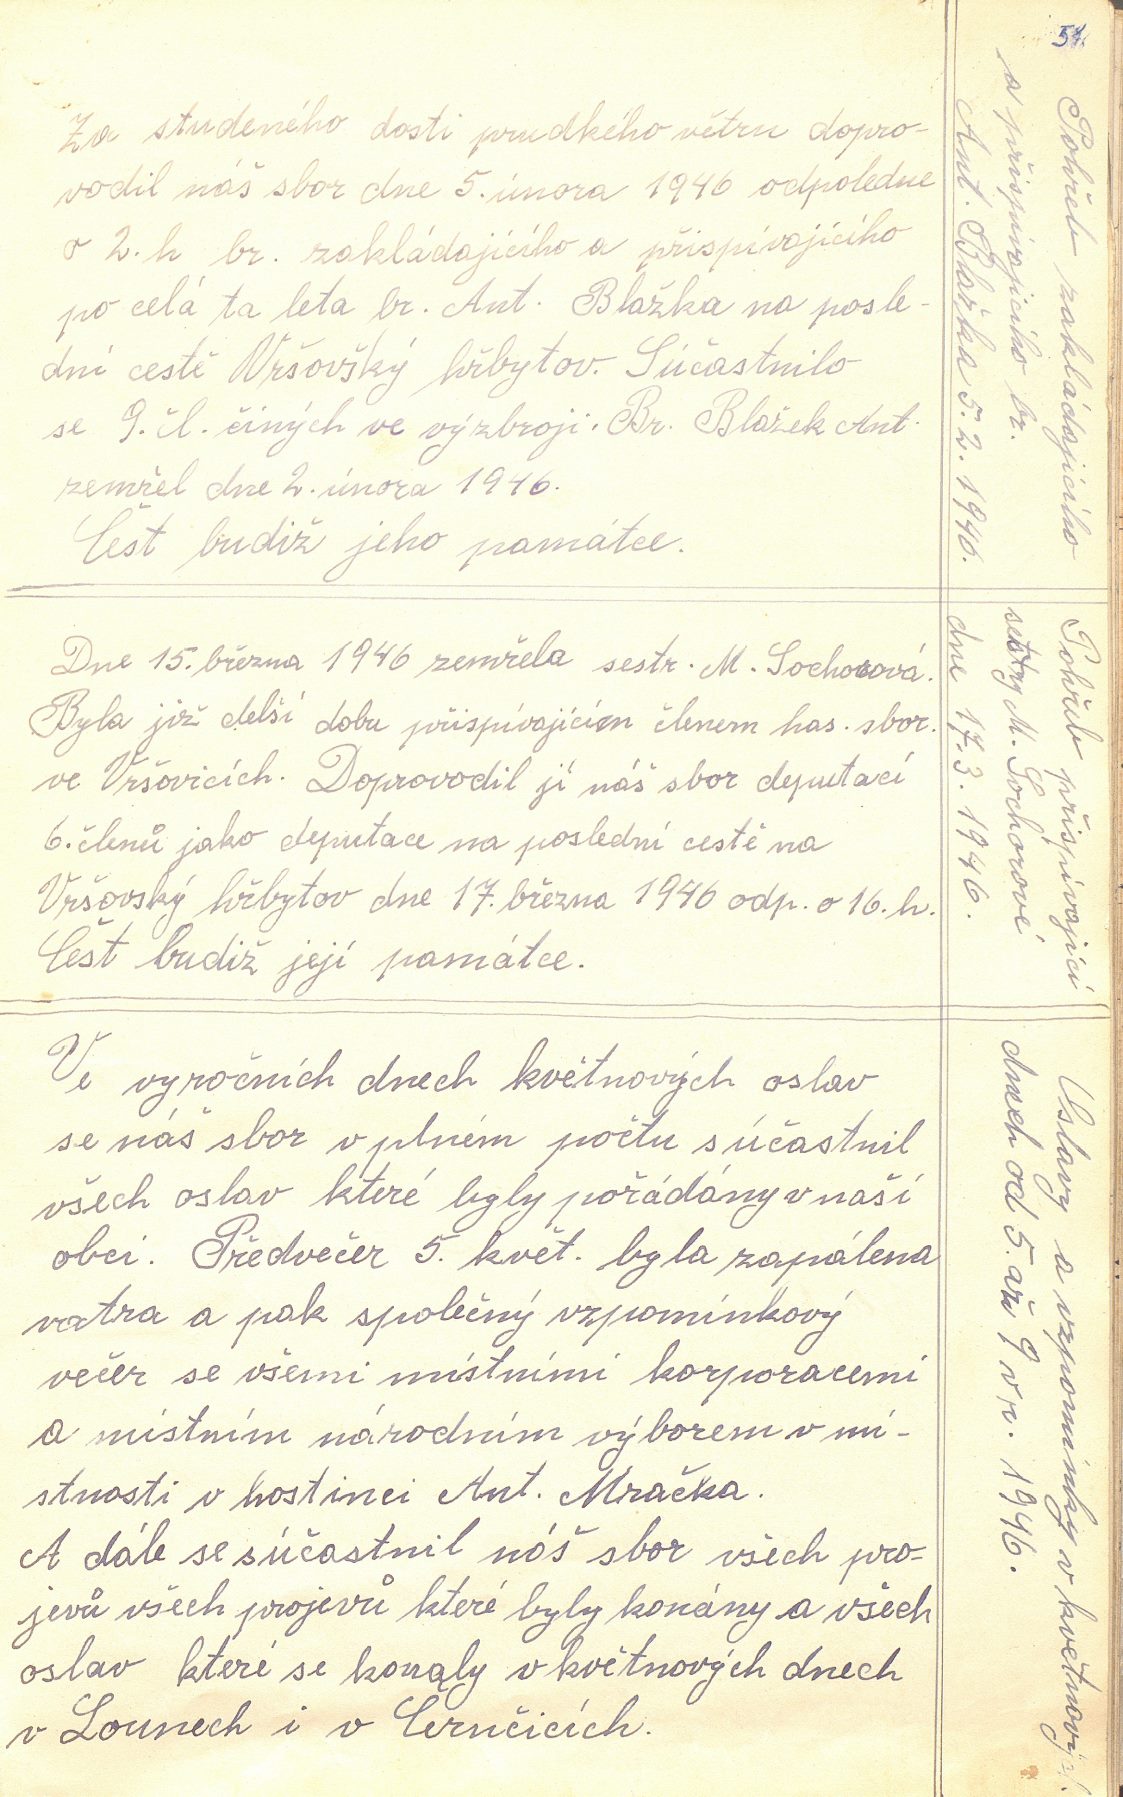 51.
Za studeného dosti prudkého větru dopro-
vodil náš sbor dne 5. února 1946 odpoledne
o 2. h br. zakládajícího a přispívajícího
po celá ta leta br. Ant. Blažka na posle-
dní cestě Vršovský hřbytov. Súčastnilo
se 9. čl. činých ve výzbroji. Br. Blažek Ant.
zemřel dne 2. února 1946.
Čest budiž jeho památce.
Pohřeb zakládajícího
a přispívajícího br.
Ant. Blažka 5. 2. 1946.
Dne 15. března 1946 zemřela sestr. M. Sochorová.
Byla již delší dobu přispívajícím členem has. sbor.
ve Vršovicích. Doprovodil jí náš sbor deputací
6. členů jako deputace na poslední cestě na
Vršovský hřbytov dne 17. března 1946 odp. o 16. h.
Čest budiž její památce.
Pohřeb přispívající
sestry M. Sochorové
dne 17. 3. 1946.
Ve vyročních dnech květnových oslav
se náš sbor v plném počtu súčastnil
všech oslav které byly pořádány v naší
obci. Předvečer 5. květ. byla zapálena
vatra a pak společný vzpomínkový
večer se všemi místními korporacemi
a místním národním výborem v mí-
stnosti v hostinci Ant. Mračka.
A dále se súčastnil náš sbor všech pro-
jevů všech projevů které byly konány a všech
oslav které se konaly v květnových dnech
v Lounech i v Černčicích.
Oslavy a vzpomínky v květnových
dnech od 5. až 9 v r. 1946.